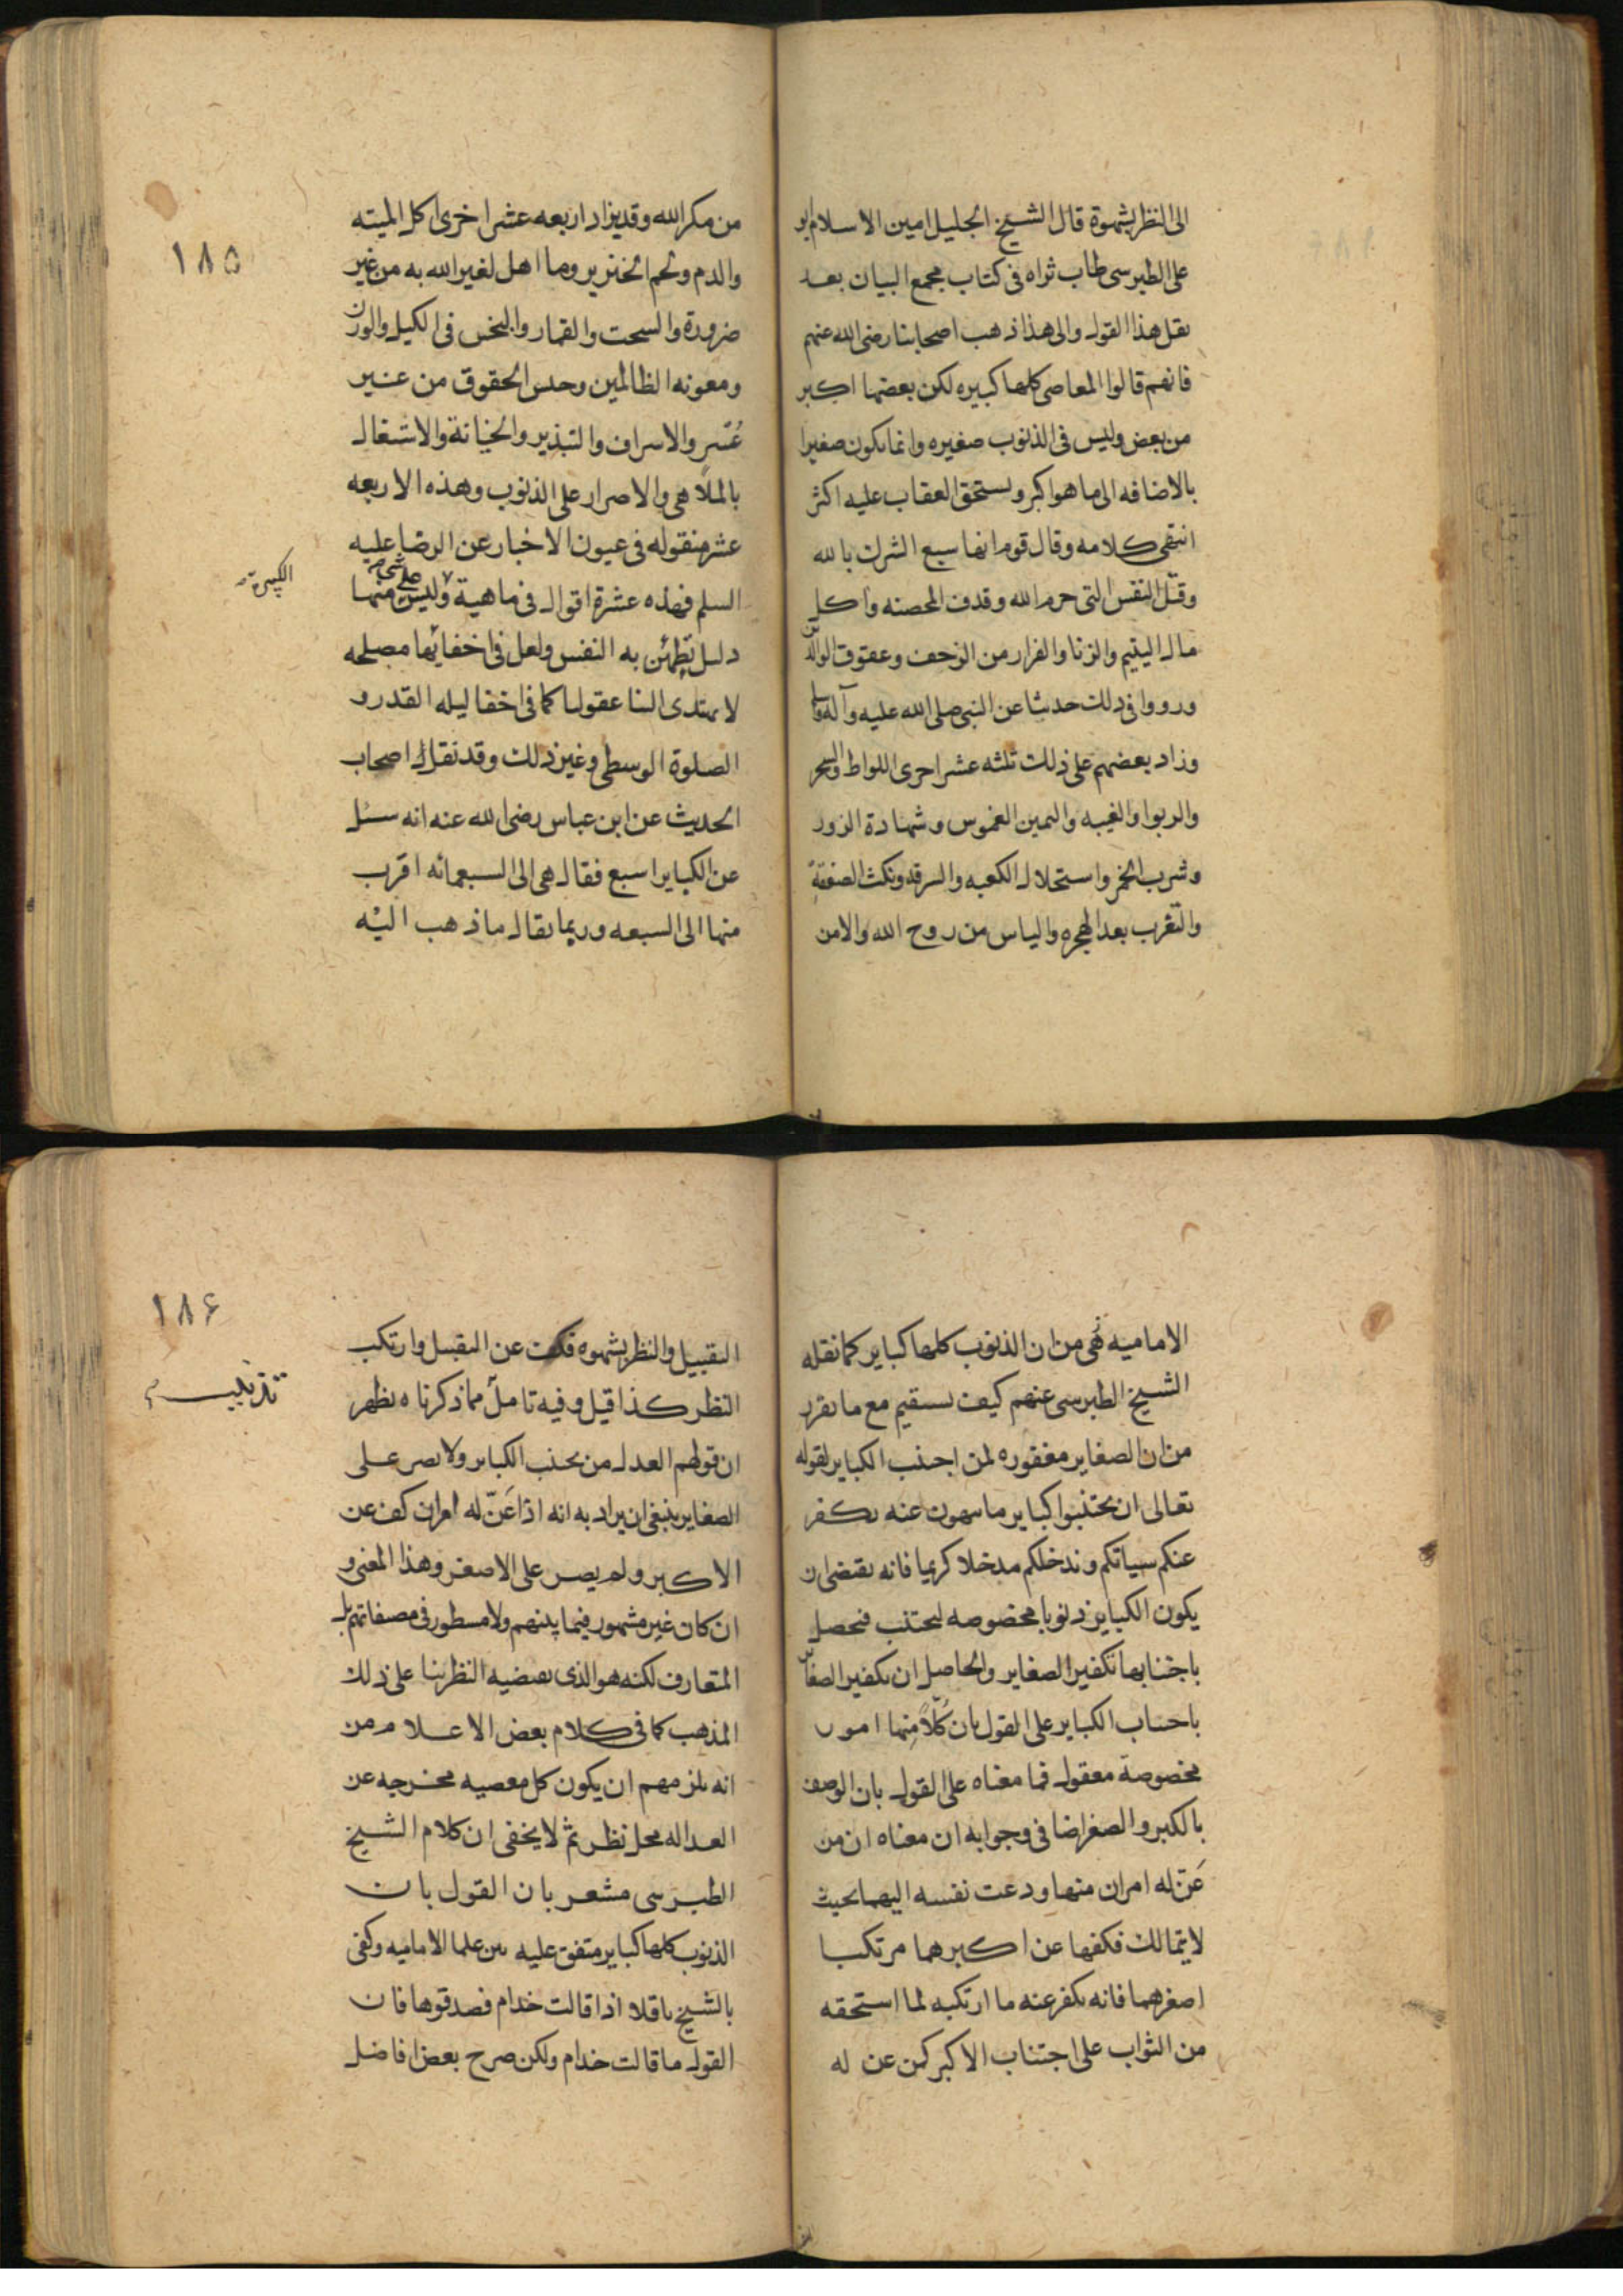 الى النظر بشهوة قال الشيخ الجليل امين الاسلام ابو
على الطبرسى طاب ثراه فى كتاب مجمع البيان بعد
نقل هذا القول والى هذا ذهب اصحابنا رضى الله عنهم
فانهم قالوا المعاصى كلها كبيره لكن بعضها اكبر
من بعض وليس فى الذنوب صغيره وانما يكون صغيرا
بالاضافه الى ما هو اكبر ويستحق العقاب عليه اكثر
انتهى كلامه وقال قوم انها سبع الشرك بالله
وقتل النفس التى حرم الله وقذف المحصنه واكل
مال اليتيم والزنا والفرار من الزحف وعقوق الوالدين
ورووا فى ذلك حديثا عن النبى صلى الله عليه وآله وسلم
وزاد بعضهم على ذلك ثلثه عشر اخرى اللواط والسحر
والربوا والغيبه واليمين الغموس وشهادة الزور
وشرب الخمر واستحلال الكعبه والسرقه ونكث الصفقة
والتعرب بعد الهجره والياس من روح الله والامن
١٨٥
من مكر الله وقد يزاد اربعه عشر اخرى اكل الميته
والدم ولحم الخنزير وما اهل لغير الله به من غير
ضرورة والسحت والقمار والبخس فى الكيل والوزن
ومعونه الظالمين وحبس الحقوق من غير
عُسر والاسراف والتبذير والخيانة والاشتغال
بالملاهى والاصرار على الذنوب وهذه الاربعه
عشر منقوله فى عيون الاخبار عن الرضا عليه
السلم فهذه عشرة اقوال فى ماهية وليس على شئ منها
الكبيرة
دليل تطمئن به النفس ولعل فى اخفائها مصلحه
لا يهتدى الينا عقولنا كما فى اخفا ليله القدر و
الصلوة الوسطى وغير ذلك وقد نقل اصحاب
الحديث عن ابن عباس رضى الله عنه انه سئل
عن الكباير اسبع فقال هى الى السبعمائه اقرب
منها الى السبعه وربما يقال ما ذهب اليه
الاماميه من ان الذنوب كلها كباير كما نقله
الشيخ الطبرسى عنهم كيف يستقيم مع ما تقرر
من ان الصغاير مغفوره لمن اجتنب الكباير لقوله
تعالى ان تجتنبوا كباير ما تنهون عنه نكفر
عنكم سياتكم وندخلكم مدخلا كريما فانه يقتضى ان
يكون الكباير ذنوبا مخصوصه ليجتنب فيحصل
باجتنابها تكفير الصغاير والحاصل ان تكفير الصغاير
باجتناب الكباير على القول بان كلّاً منها امور
مخصوصة معقول فما معناه على القول بان الوصف
بالكبر والصغر اضافى وجوابه ان معناه ان من
عَنّ له امران منها ودعت نفسه اليهما بحيث
لا يتمالك فكفها عن اكبرهما مرتكبا
اصغرهما فانه يكفر عنه ما ارتكبه لما استحقه
من الثواب على اجتناب الاكبر كمن عن له
١٨۶
التقبيل والنظر بشهوه فكف عن التقبيل وارتكب
النظر كذا قيل وفيه تامل مما ذكرناه يظهر
تذنيب
ان قولهم العدل من يجتنب الكباير ولا يصر على
الصغاير ينبغى ان يراد به انه اذا عَنّ له امران كف عن
الاكبر ولم يصر على الاصغر وهذا المعنى و
ان كان غير مشهور فيما بينهم ولا مسطور فى مصنفاتهم بل
المتعارف لكنه هو الذى يقتضيه النظر بنا على ذلك
المذهب كما فى كلام بعض الاعلام من
انه يلزمهم ان يكون كل معصيه مخرجه عن
العداله محل نظر ثم لا يخفى ان كلام الشيخ
الطبرسى مشعر بان القول بان
الذنوب كلها كباير متفق عليه بين علما الاماميه وكفى
بالشيخ ناقلا اذا قالت خدام فصدقوها فان
القول ما قالت خدام ولكن صرح بعض افاضل